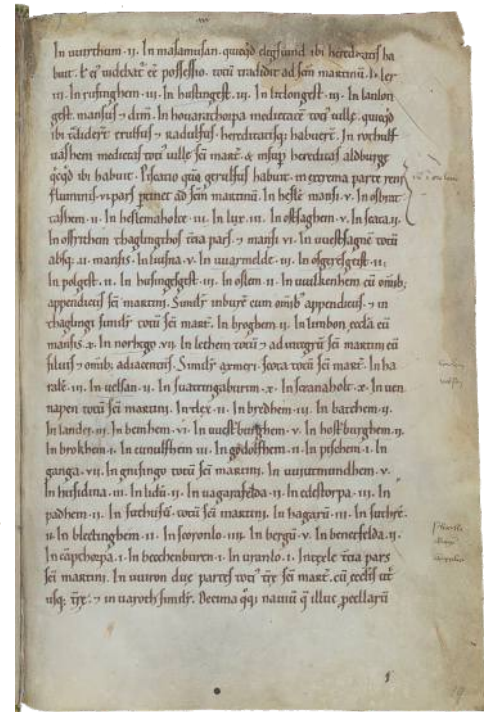 In uuirthum · ii · In masamusan · quicqd elegsuind ibi hereditatis ha
buit · & ei videbat̄ eē possessio · totū tradidit ad scm̄ martinū · In ler
iii · In rusinghem · iii · In hustingest · iii · In loclongest · iii · In lanlon
gest · mansus ⁊ dim̄ · In houarathorpa medietatē toti villę · quicqd
ibi
hereditatisq; habuert̄ · In rothulf
uashem medietas toti ville sc̄i mart̄ · & insup hereditas aldburge
qcqd ibi habuit · Piscatio quā gerulfus habuit · in extrema parte reni
fluminis · vi pars ptinet ad sc̄m martinum · In hesle mansi · v · In osbrut
tashem · ii · In heslemaholte · iii · In lux · iii · In ostsaghem · v · In scata · ii
In offrithem
t̄cia pars · ⁊ mansi vi · In uuestsagnē totū
absq; · ii · mansis · In luusna · v · In uuarmelde · iii · In osgeresgest · ii ·
In polgest · ii · In husingesgest · iii · In oslem · ii · In uuulkenhem cū omib;
appendiciis sc̄i martini · Similr̄
cum omib; appendiciis · ⁊ in
thaglingi similr̄ totū sc̄i mart̄ · In broghem · ii · In limbon · eccla cū
mansis · x · In norhgo · vii · In lethem totū ⁊ ad integrū sc̄i martini cū
siluis ⁊ omib; adiacentiis · Similr̄ axmeri · Scota totū sc̄i mart̄ · In ha
ralē · iii · In uelsan · ii · In suattingaburim · x · In scranaholt · x · In uen
napen totū sc̄i martini · In tlex · ii · In bredhem · iii · In batthem · ii
In lander · iii · In bemhem · vi · In uuestburghem · v · In hostburghem · ii
In brokhem · i · In cunulfhem · iii · In godolfhem · ii · In pischem · i · In
ganga · vii · In gnisingo totū sc̄i martini · In uuiutmundhem · v ·
In husidina · iii · In lidū · ii · In uagarafelda · ii · In edestorpa · iii · In
padhem · ii · In suthusū · totū sc̄i martini · In hagarū · iii · In
ii · In blectinghem · ii · In scoronlo · iiii · In bergū · v · In benetfelda · ii
In cāpthorpa · i · In beochenburen · i · In uranlo · i · In texle t̄cia pars
sc̄i martini · In uuiron duę partes toti t̄re sc̄i mart̄ · cū ecclīs
usq;
⁊ in uaroth similr̄ · Decima
nauiū q̄ illuc